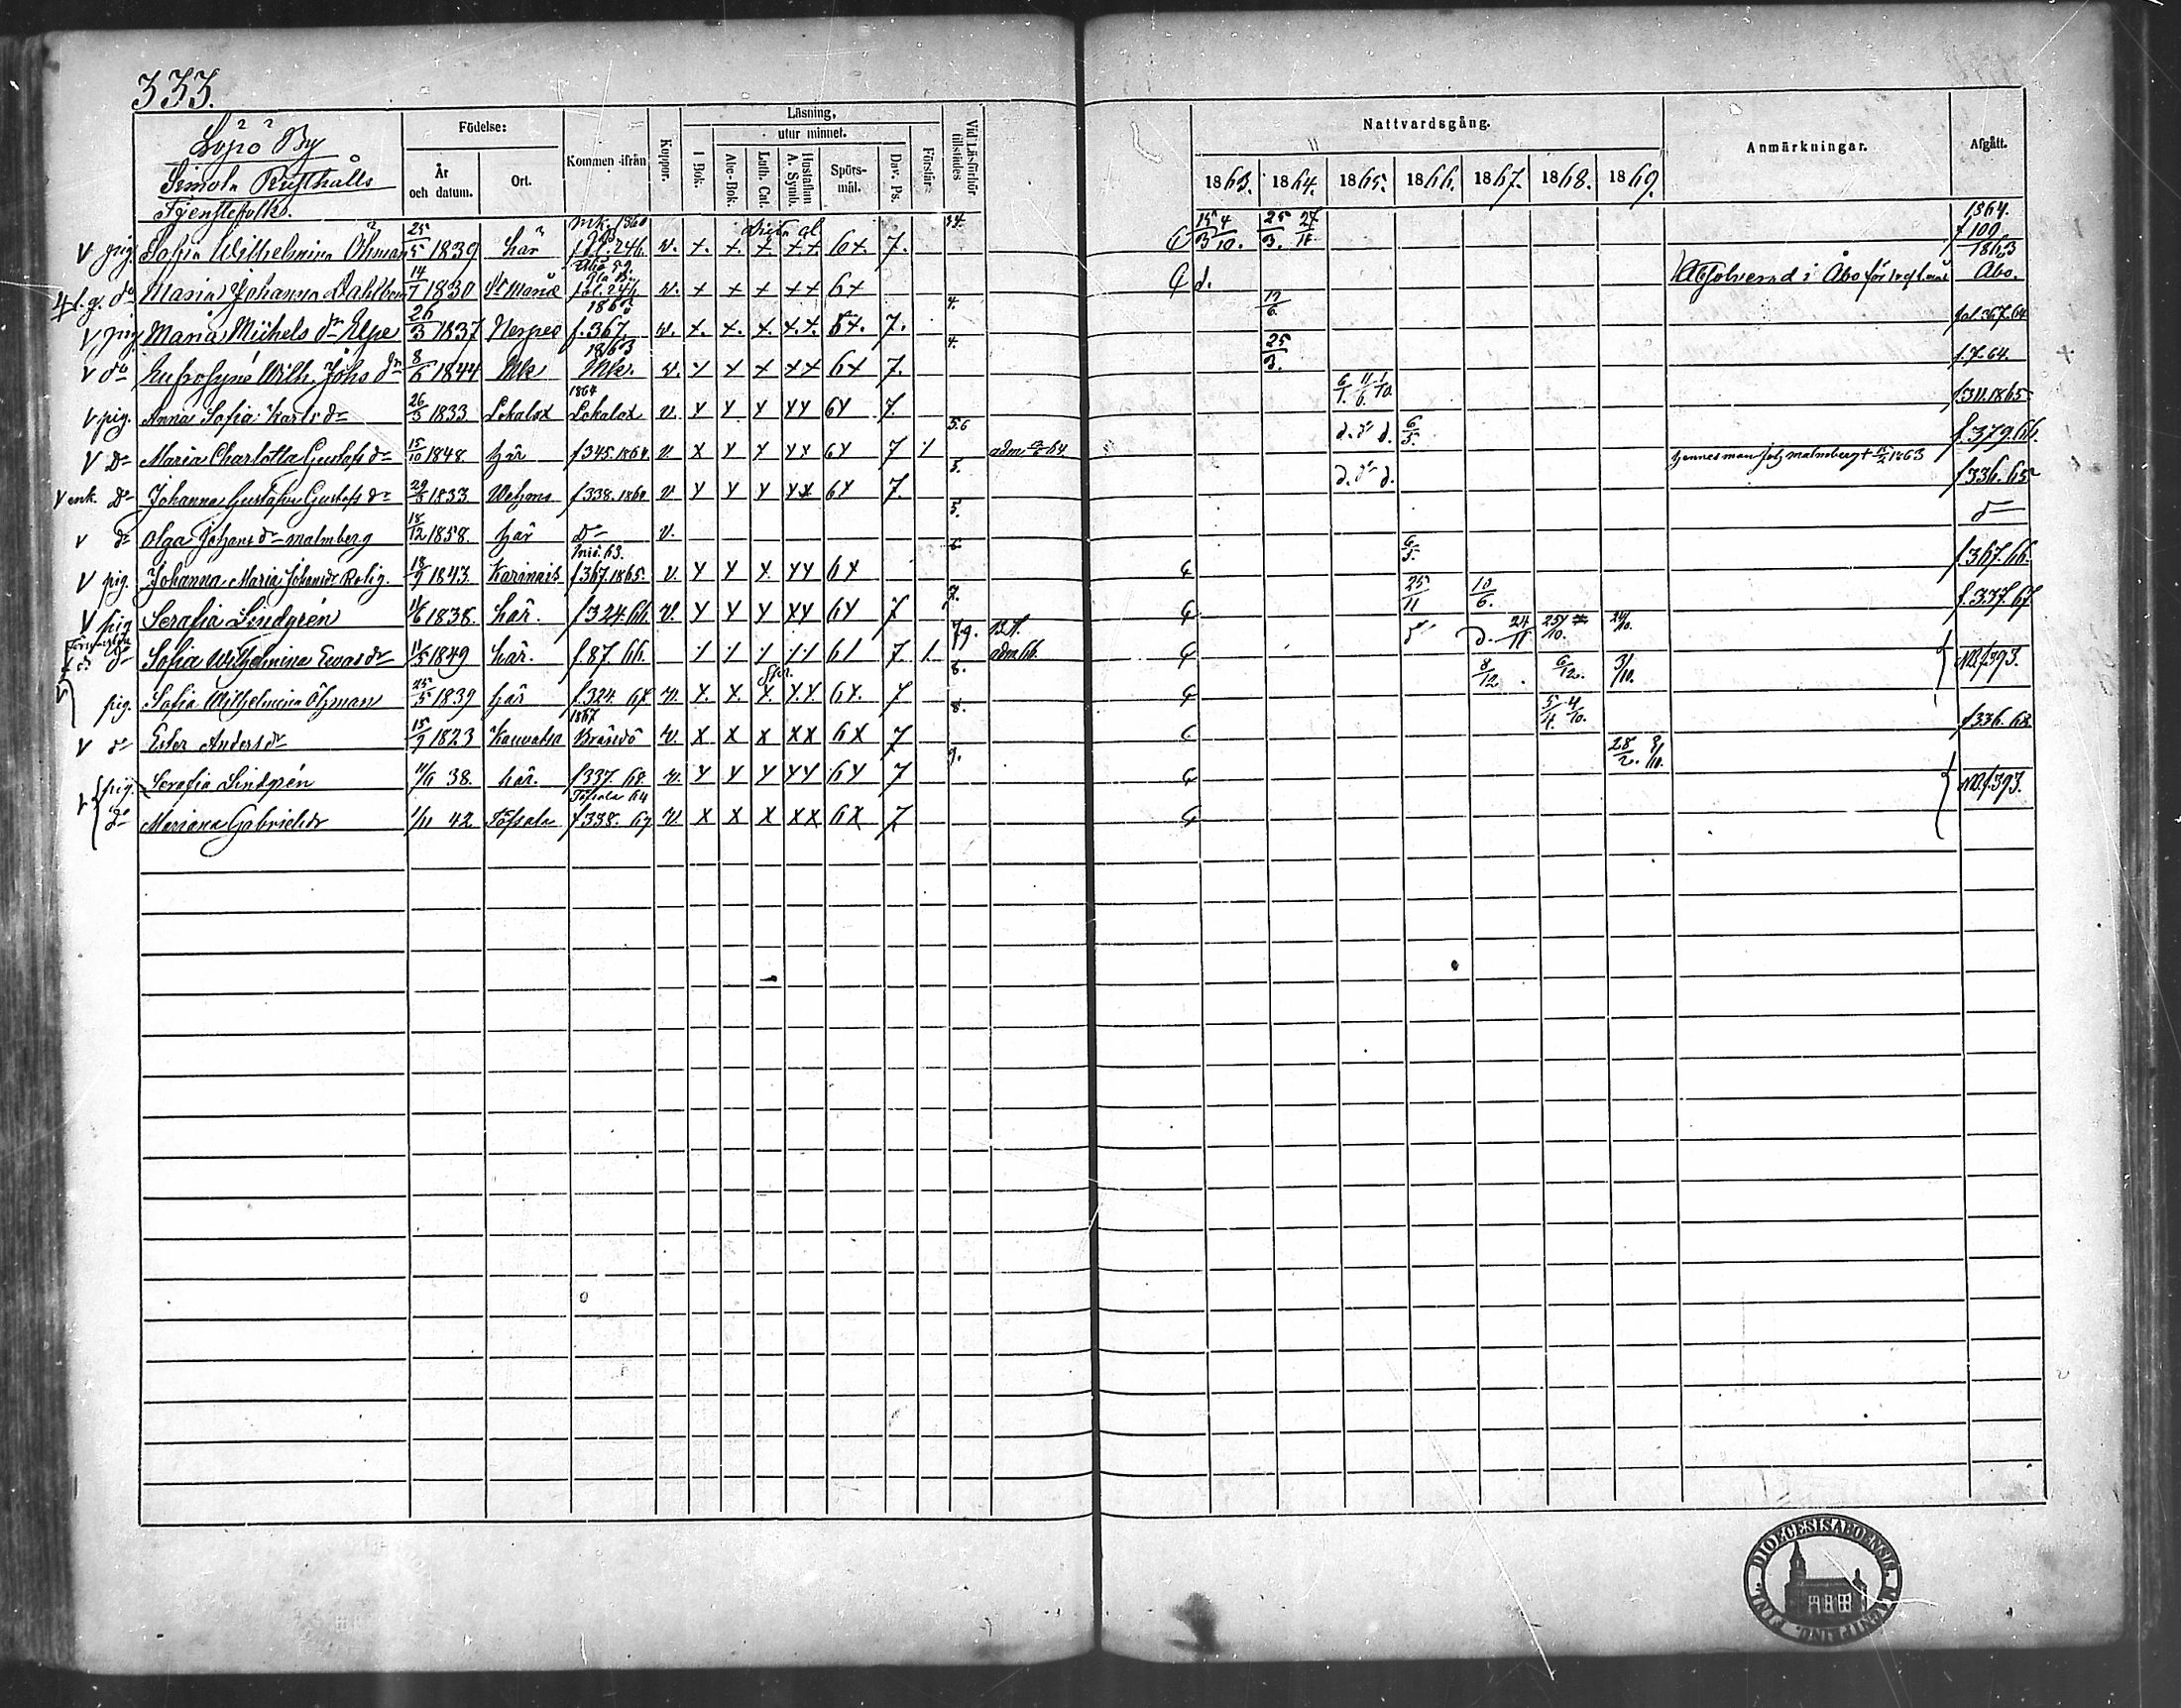 333.
Löpö By
Simola Rusthålls
Tjenstefolk.
Födelse:
År och datum.
Ort.
Kommen ifrån
Koppor.
Läsning,
I Bok.
utur minnet.
Abc-Bok.
Luth. Cat.
Hustaflan A. Symb.
Spörs-mål.
Dav. Ps.
Förstår.
Vid Läsförhör tillstädes
Nattvardsgång.
1863. 1864. 1865. 1866. 1867. 1868. 1869.
Anmärkningar.
Afgått.
V pig. Sofia Wilhelmina Öhman 25/5 1839 här fol. 246. v. 6x 7. 15/3 4/10. 25/3. 1864.
do Maria Johanna Dahlbom 14/7 1830 St Marie fol. 246 v. 6x d. Absolverad i Åbo för 1863 Åbo.
V pig Maria Michels dr Elpe 26/3 1837 Nerpes 1863 f. 367. v. 7. 4. fol. 367. 64
V do Eufrosyne Wilh. Johs dr 8/6 1844 Mk 1863 Mk. v. 6x 7. 4. 25/3. f. 7. 64.
V pig. Anna Sofia Karls dr 26/5 1833 Lokalax 1864 Lokalax v. 6x 7. f. 311. 1865
V Do Maria Charlotta Gustafs dr 15/10 1848. här f 345. 1864. v 6x 7 56 adm. 64. d. do d. 6/5. f. 379. 66.
V enk. Do Johanna Gustafva Gustafs dr 29/8 1833 Wehmo f 338. 1860 v 6x 7. 5. d. do d. hennes man Joh Malmberg † 1863 f 336. 65
v do Olga Johans dr Malmberg 18/12 1858. här Do v. 5. do
V pig. Johanna Maria Johansdr Rolig. 18/9 1843. Karinais f 367. 1865. v. 6x 6 6/5. f. 367. 66.
V pig Serafia Lindgrén 11/6 1838. här. f 324. 66. v. 6x 7 7. 25/11 10/6. f. 337. 67.
do Sofia Wilhelmina Evas dr 11/5 1849 här. f. 87. 66. 61 7. 1. 7.9. adm 66. do d. 24/11 24/10. NB. f. 393.
pig. Sofia Wilhelmina Öhman 25/5 1839 här f. 324. 67 v. 6x. 7 8. 8/12 6/12. 3/10.
V do Ester Anders dr 15/9 1823 Kauvatsa 1867 Brändö v. 6x 7 8. 5/4. 4/10. f 336. 68
pig. Serafia Lindgrén 11/6 38. här. f 337. 68. v. 6x 7 9. 28/2. 8/10. NB. f. 393.
do Mariana Gabrielsdr 1/11 42 Töfsala Töfsala 64 f 338. 69 v. 6x 7
FINL. DIOECESIS ABOENSIS. MAGNI PRINC.